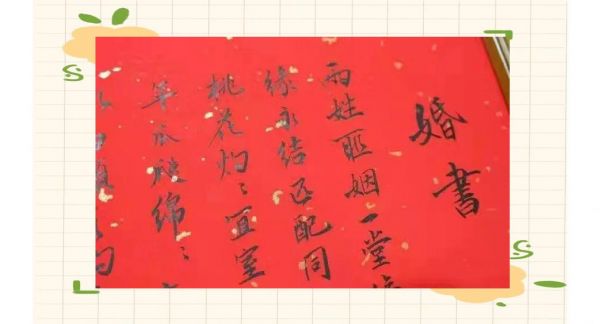 婚書
两姓联姻一堂
缘永结匹配同
桃花灼〻宜室
年瓜瓞绵〻